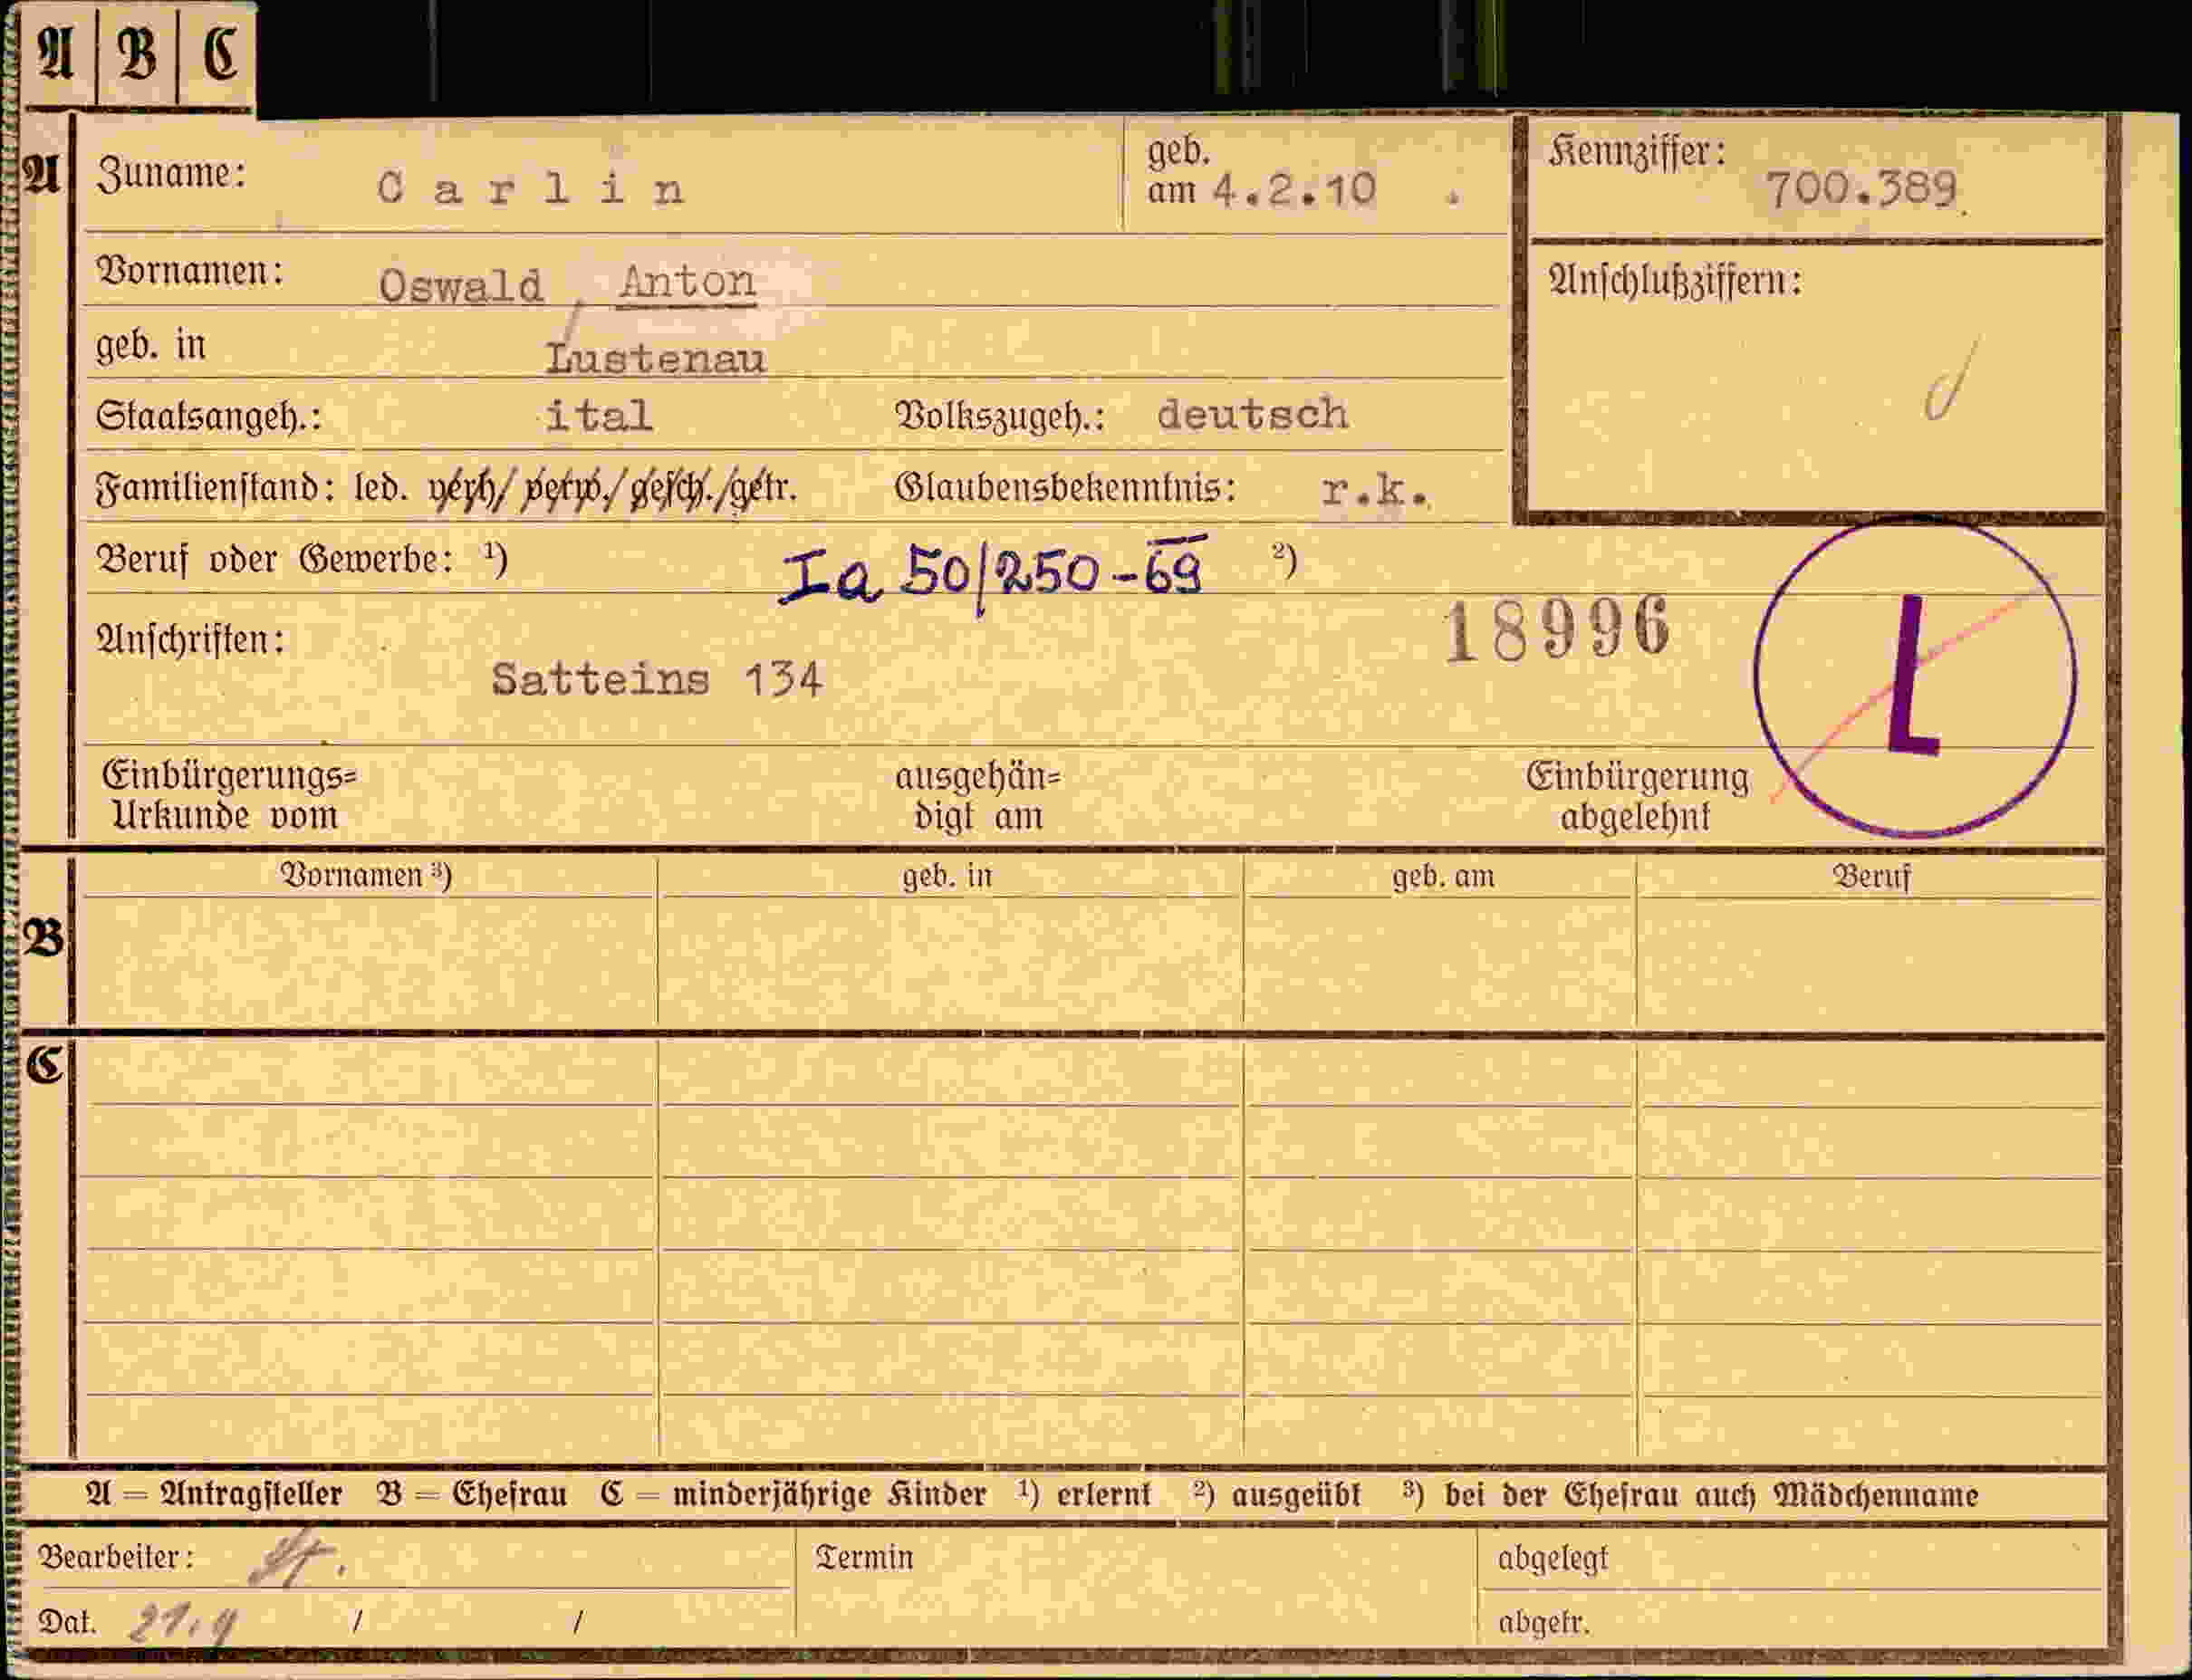 A B C
A Zuname: Carlin geb. am 4.2.10 . Kennziffer: 700.389
Vornamen: Oswald, Anton Anschlußziffern:
geb. in Lustenau
Staatsangeh.: ital Volkszugeh.: deutsch
Familienstand: led. verh/ verw./gesch./getr. Glaubensbekenntnis: r.k.
Beruf oder Gewerbe: ¹) Ia 50/250-69 ²)
18996
Anschriften:
L
Satteins 134
Einbürgerungs= ausgehän= Einbürgerung
Urkunde vom digt am abgelehnt
Vornamen ³) geb. in geb. am Beruf
B
C
A = Antragsteller B = Ehefrau C = minderjährige Kinder ¹) erlernt ²) ausgeübt ³) bei der Ehefrau auch Mädchenname
Bearbeiter: Termin abgelegt
Dat. 21.9 / / abgetr.